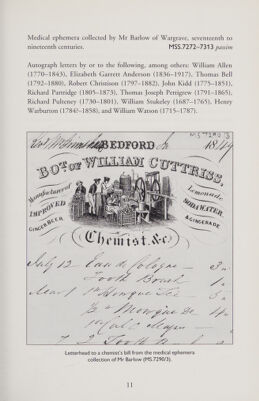 Medical ephemera collected by Mr Barlow of Wargrave, seventeenth to
nineteenth centuries. MSS.7272–7313 passim
Autograph letters by or to the following, among others: William Allen
(1770–1843), Elizabeth Garrett Anderson (1836–1917), Thomas Bell
(1792–1880), Robert Christison (1797–1882), John Kidd (1775–1851),
Richard Partridge (1805–1873), Thomas Joseph Pettigrew (1791–1865),
Richard Pulteney (1730–1801), William Stukeley (1687–1765), Henry
Warburton (1784?–1858), and William Watson (1715–1787).
MS 7290/3
BEDFORD 1849
BOT. OF WILLIAM CUTTRISS,
Manufacturer of
IMPROVED
GINGER BEER
Lemonade
SODA WATER
& GINGERADE
Chemist, &c.
July 12 Eau de Cologne – 3
Tooth Brush 1
Letterhead to a chemist's bill from the medical ephemera
collection of Mr Barlow (MS.7290/3).
11